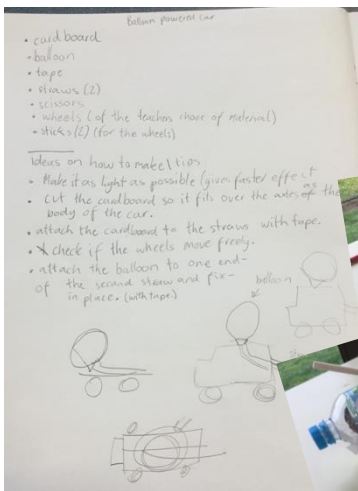 Balloon powered car
• cardboard
• balloon
• tape
• straws (2)
• scissors
• wheels (of the teachers choice of material)
• sticks (2) (for the wheels)
Ideas on how to make / tips
- Make it as light as possible (gives faster effect
• cut the cardboard so it fits over the axles as the
body of the car.
• attach the cardboard to the straws with tape.
• check if the wheels move freely.
• attach the balloon to one end-
of the second straw and fix-
in place. (with tape)
balloon